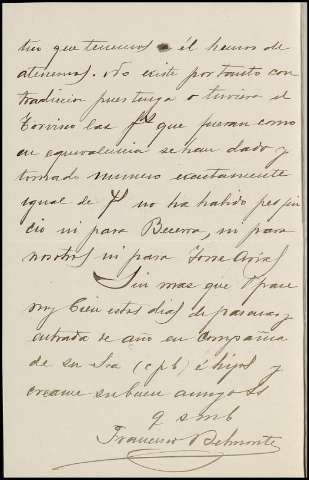 tivo que tenemos á él hemos de
atenernos. No existe por tanto con
tradiccion pues tenga o tuviera el
Torvisco las fs que fueran como
en equivalencia se han dado y
tomado numero exactamente
igual de fs no ha habido perjui
cio ni para Becerra, ni para
nosotros ni para Torre Arias
Sin mas que V pase
muy bien estos dias de pascuas y
entrada de año en compañia
de su Sra (c p b) é hijos y
creame su buen amigo SS
q s m b
Francisco Belmonte